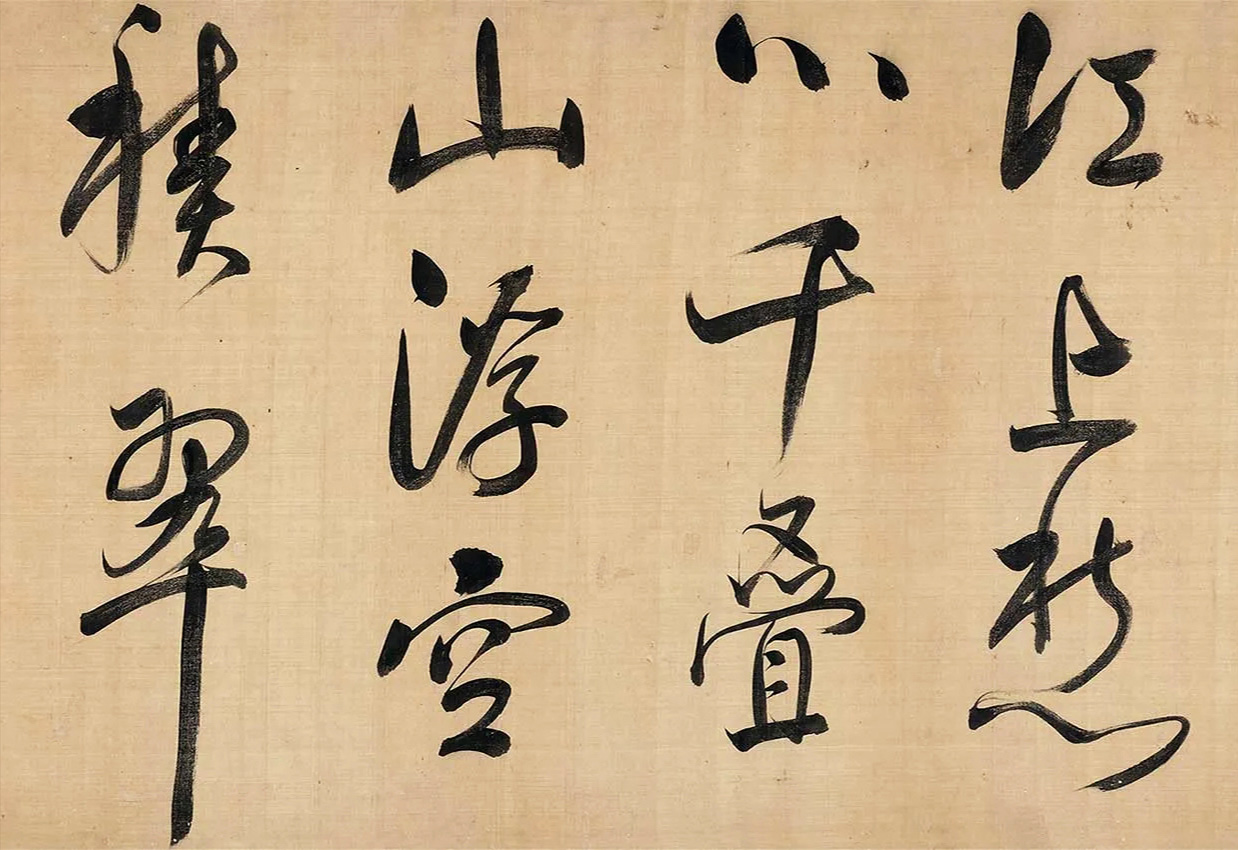 江上愁
心千疊
山浮空
積翠